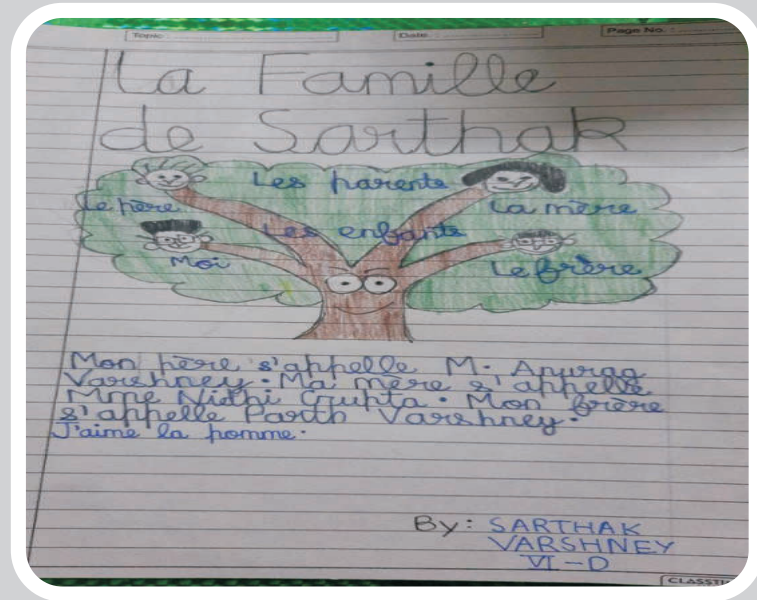 Topic
Date
Page No.
La Famille
de Sarthak
Les parents
Le père
La mère
Les enfants
Moi
Le frère
Mon père s'appelle M. Anurag
Varshney. Ma mère s'appelle
Mme Nidhi Gupta. Mon frère
s'appelle Parth Varshney.
J'aime la pomme.
By: SARTHAK
VARSHNEY
VI-D